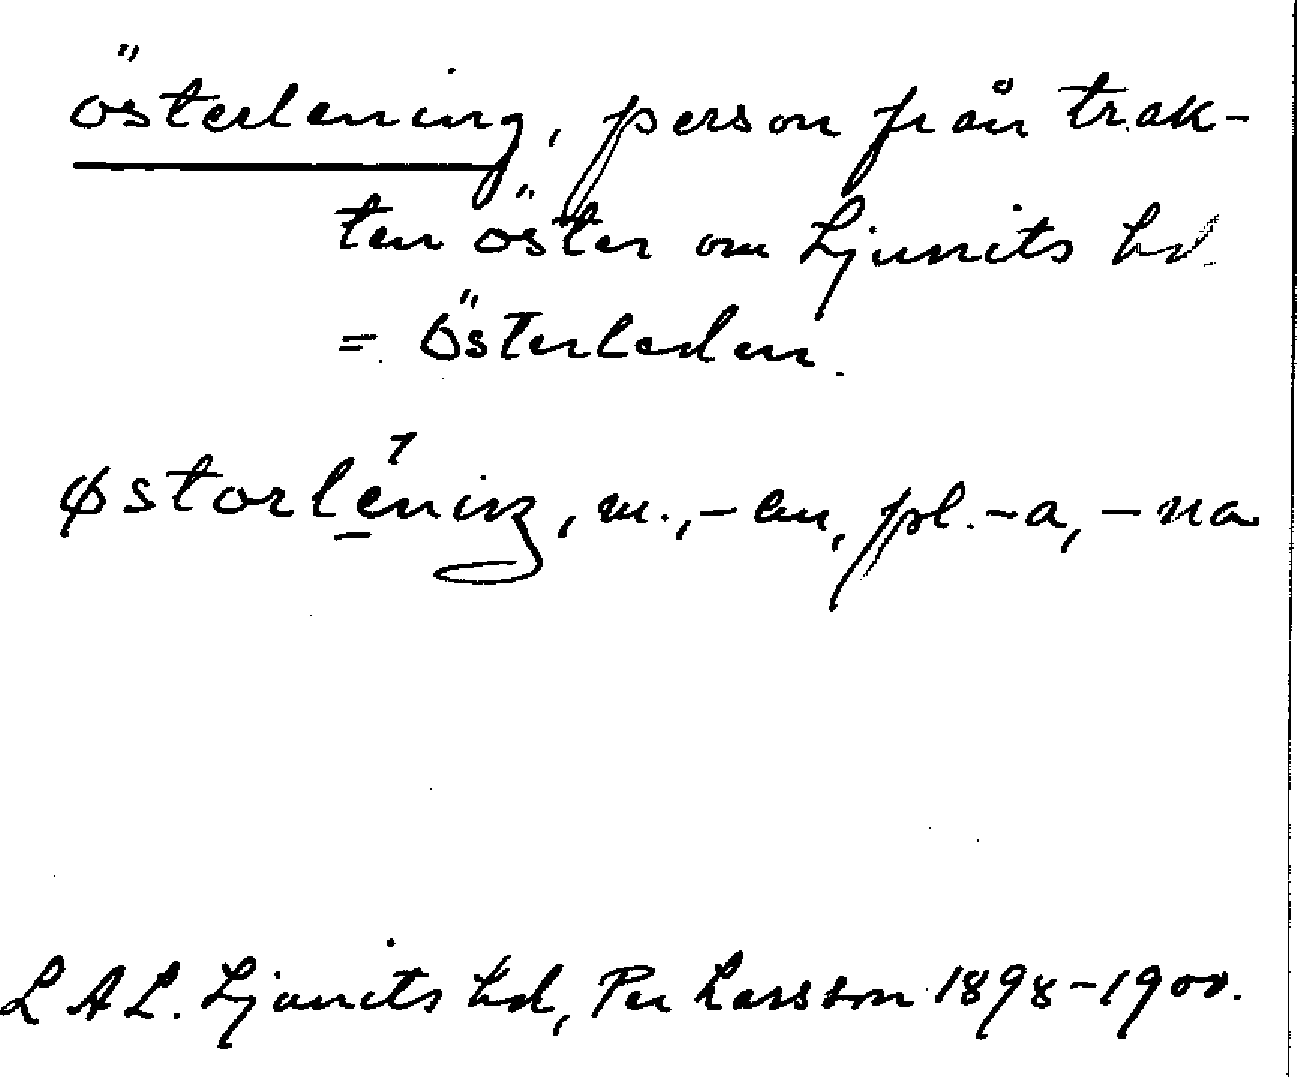 österlening, person från trak-
ten öster om Ljunits hd.
= Österleden.
østorlēning, m., -en, pl. -a, -na
LAL. Ljunits hd, Per Larsson 1898-1900.